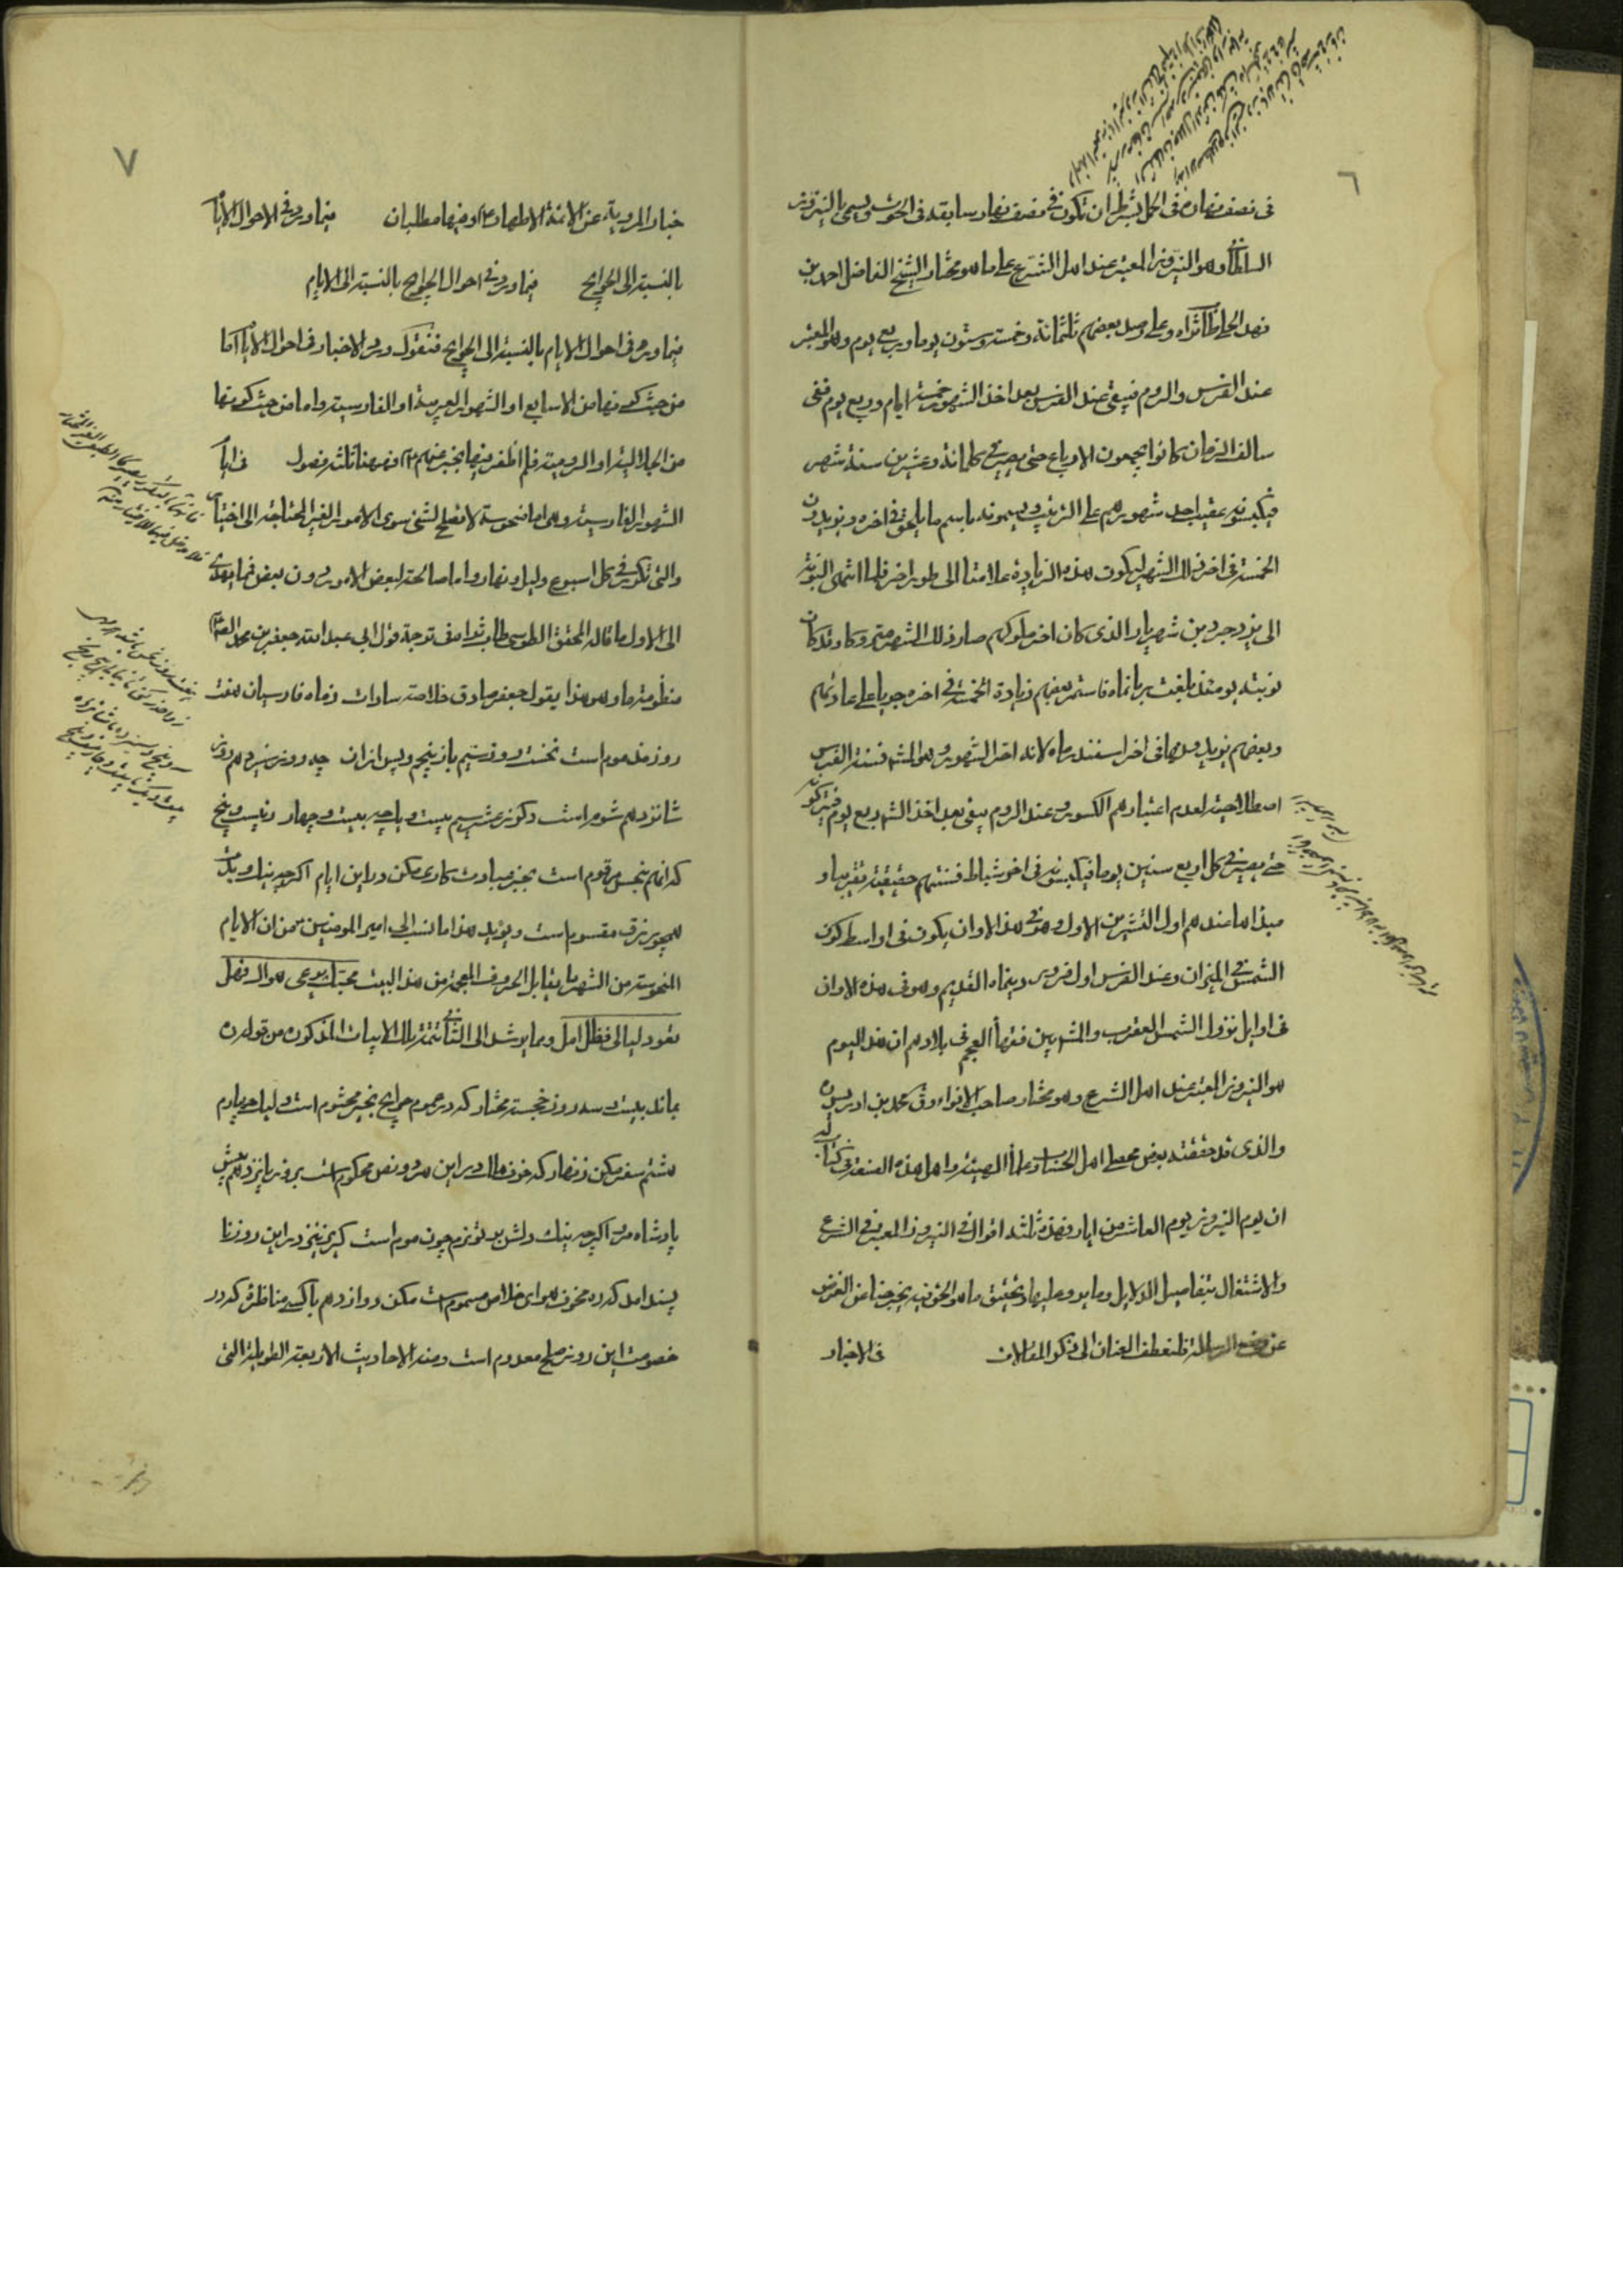 ٦
فى نصف نهاره فى الحمل بشرط ان تكون فى نصف نهار سابقه فى الحوت ويسمى بالنيروز
السلطانى وهو النيروز المعتبر عند اهل الشرع على ما هو مختار الشيخ الفاضل احمد بن
فهد الحلى طاب ثراه وعلى رصد بعضهم ثلثمائة وخمسة وستون يوما وربع يوم وهو المعتبر
عند الفرس والروم فيبقى عند الفرس بعد اخذ الشهور خمسة ايام وربع يوم ففى
سالف الزمان كانوا يجمعون الارباع حتى يصير فى كل مائة وعشرين سنة شهر
فيكبسونه عقيب احد شهورهم على الترتيب ويسمونه باسم ما يلحق فى اخره ويزيدون
الخمسة فى اخر ذلك الشهر ليكون هذه الزيادة علامتها الى طور اخر فلما انتهى النوبة
الى يزدجرد بن شهريار الذى كان اخر ملوكهم صار ذلك الشهر متروكا وقد كان
نوبته يومئذ بلغت بابانماه فاستمر بعضهم زيادة الخمسة فى اخره جريا على عادتهم
وبعضهم يزيدونها فى اخر اسفندارماه لانه اخر الشهور وهو المشهور فسنة الفرس
اصطلاحية لعدم اعتبارهم الكسور وعند الروم يبقى بعد اخذ الشهور ربع يوم فيتركونه
حتى يصير فى كل اربع سنين يوما فيكبسونه فى اخر شباط فسنتهم حقيقية تقريبا و
مبدأها عندهم اول التشرين الاول وهو فى هذا الاوان يكون فى اواسط كون
الشمس فى الميزان وعند الفرس اول فروردينماه القديم وهو فى هذه الاوان
فى اوايل نزول الشمس العقرب والمشهور بين فقهاء العجم فى بلادهم ان هذا اليوم
هو النيروز المعتبر عند اهل الشرع وهو مختار صاحب الانواء وق محمد بن ادريس ره
والذى قد حققه بعض محصلى اهل الحساب وعلماء الهيئة واهل هذه الصنعة فى كتاب له
ان يوم النيروز يوم العاشر من ايار فهذه ثلثة اقوال فى النيروز المعتبر فى الشرع
والاشتغال بتفاصيل الدلايل وما يرد عليها وتحقيق ما هو الحق فيه يخرجنا عن الغرض
عن وضع الرسالة فلنعطف العنان الى ذكر المقالات فى الاخبار
٧
خبار المروية عن الائمة الاطهار ع وفيها مطلبان فيما ورد فى الاحوال الايام
بالنسبة الى الحوايج فيما ورد فى احوال الحوايج بالنسبة الى الايام
فيما ورد فى احوال الايام بالنسبة الى الحوايج فنقول ورود الاخبار فى احوال الايام اما
من حيث كونها من الاسابيع او الشهور العربية او الفارسية واما من حيث كونها
من الجلالية او الرومية فلم اظفر فيها بخبر عنهم ع فههنا ثلثة فصول فى ايام
الشهور الفارسية وهى اما منحوسة لا تصلح لشئ سوى الامور الغير المحتاجة الى اختيار
والتى تكون فى كل اسبوع وليل ونهار واما صالحة لبعض الامور دون بعض فما يهدى
الى الاول ما قاله المحقق الطوسى طاب ثراه فى ترجمة قول ابى عبد الله جعفر بن محمد الصادق ع
منظومة ما وهو هذا بقول جعفر صادق خلاصه سادات زماه فارسيان هفت
روز مذموم است نخست روز سيم باز پنجم وپس از ان چه روز سيزدهم روز
شانزدهم شوم است دكر ز عشر سيم بيست ويك چه بيست وچهار دكر بيست وپنج
كه انهم بنحس مرقوم است بجز عبادت كارى مكن در اين ايام اكرچه نيك وبدت
همچو رزق مقسوم است ويؤيد هذا ما نسب الى امير المومنين من ان الايام
المنحوسة من الشهر ما يقابل الحروف المعجمة من هذا البيت محبك يرعى هواك فهل
تعود ليالى فظل امل ومما يرشد الى الثانى تتمة تلك الابيات المذكوره من قوله ره
بماند بيست وسه روز خجسته مختار كه در عموم حوايج بخير مختوم است وليك چهارم
هشتم سفر مكن زنهار كه خوف هالك در اين هر دو نص محكوم است بروز پانزدهم پيش
پادشاه مرو اكرچه نيك دلش بر تو نرم چون موم است كريز نيز در اين روز نا
پسند امد كه ره مخوف هواى خلاص مسموم است مكن دوازدهم با كسى مناظره كه در
خصومت اين روز صلح معدوم است ومنه الاحاديث الاربعة الطويلة التى